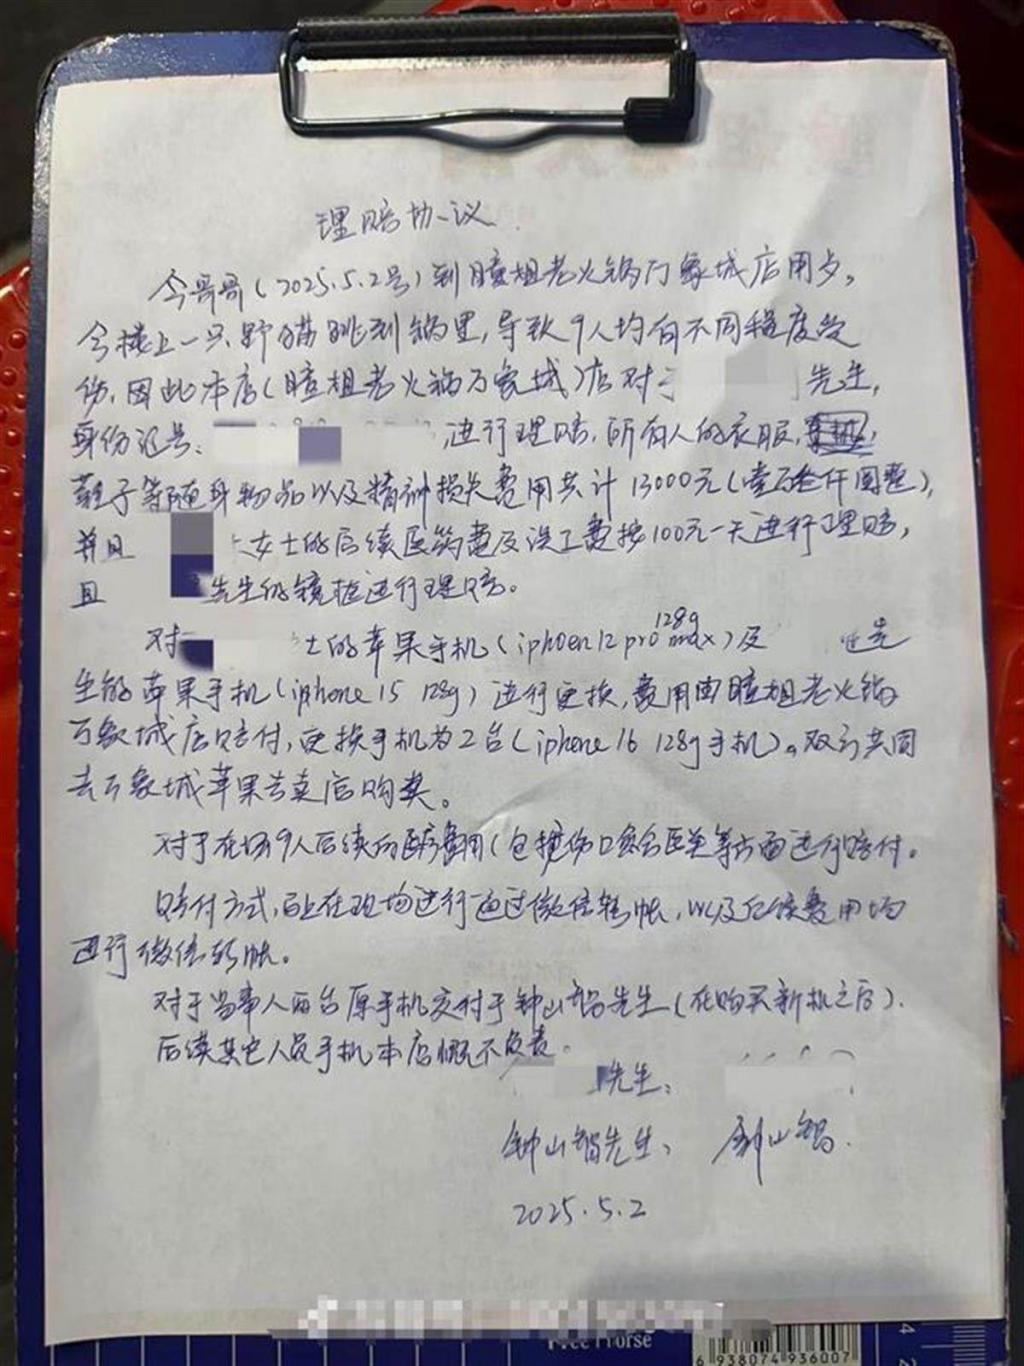 理赔协议
今哥哥(2025.5.2号)到瞳姐老火锅万象城店用歺,
今楼上一只野猫跳到锅里,导致9人均有不同程度受
伤,因此本店(瞳姐老火锅万象城)店对 先生,
身份证号: 进行理赔,所有人的衣服,
鞋子等随身物品以及精神损失费用共计13000元(壹万叁仟圆整),
并且 女士的后续医药费及误工费按100元一天进行理赔,
且 先生的镜框进行理赔。
对 士的苹果手机(iphoen12 pro max 128g)及 先
生的苹果手机(iphone 15 128g)进行更换,费用由瞳姐老火锅
万象城店赔付,更换手机为2台(iphone 16 128g手机)。双方共同
去万象城苹果专卖店购买。
对于在场9人后续的医疗费用(包括伤口愈合医美等方面进行赔付。
赔付方式,现场进行通过微信转帐,以及后续费用均
进行微信转帐。
对于当事人两台原手机交付于钟山智先生(在购买新机之后).
后续其它人员手机本店概不负责。
先生:
钟山智先生: 钟山智.
2025.5.2
Free Horse
6 938074 936007
4